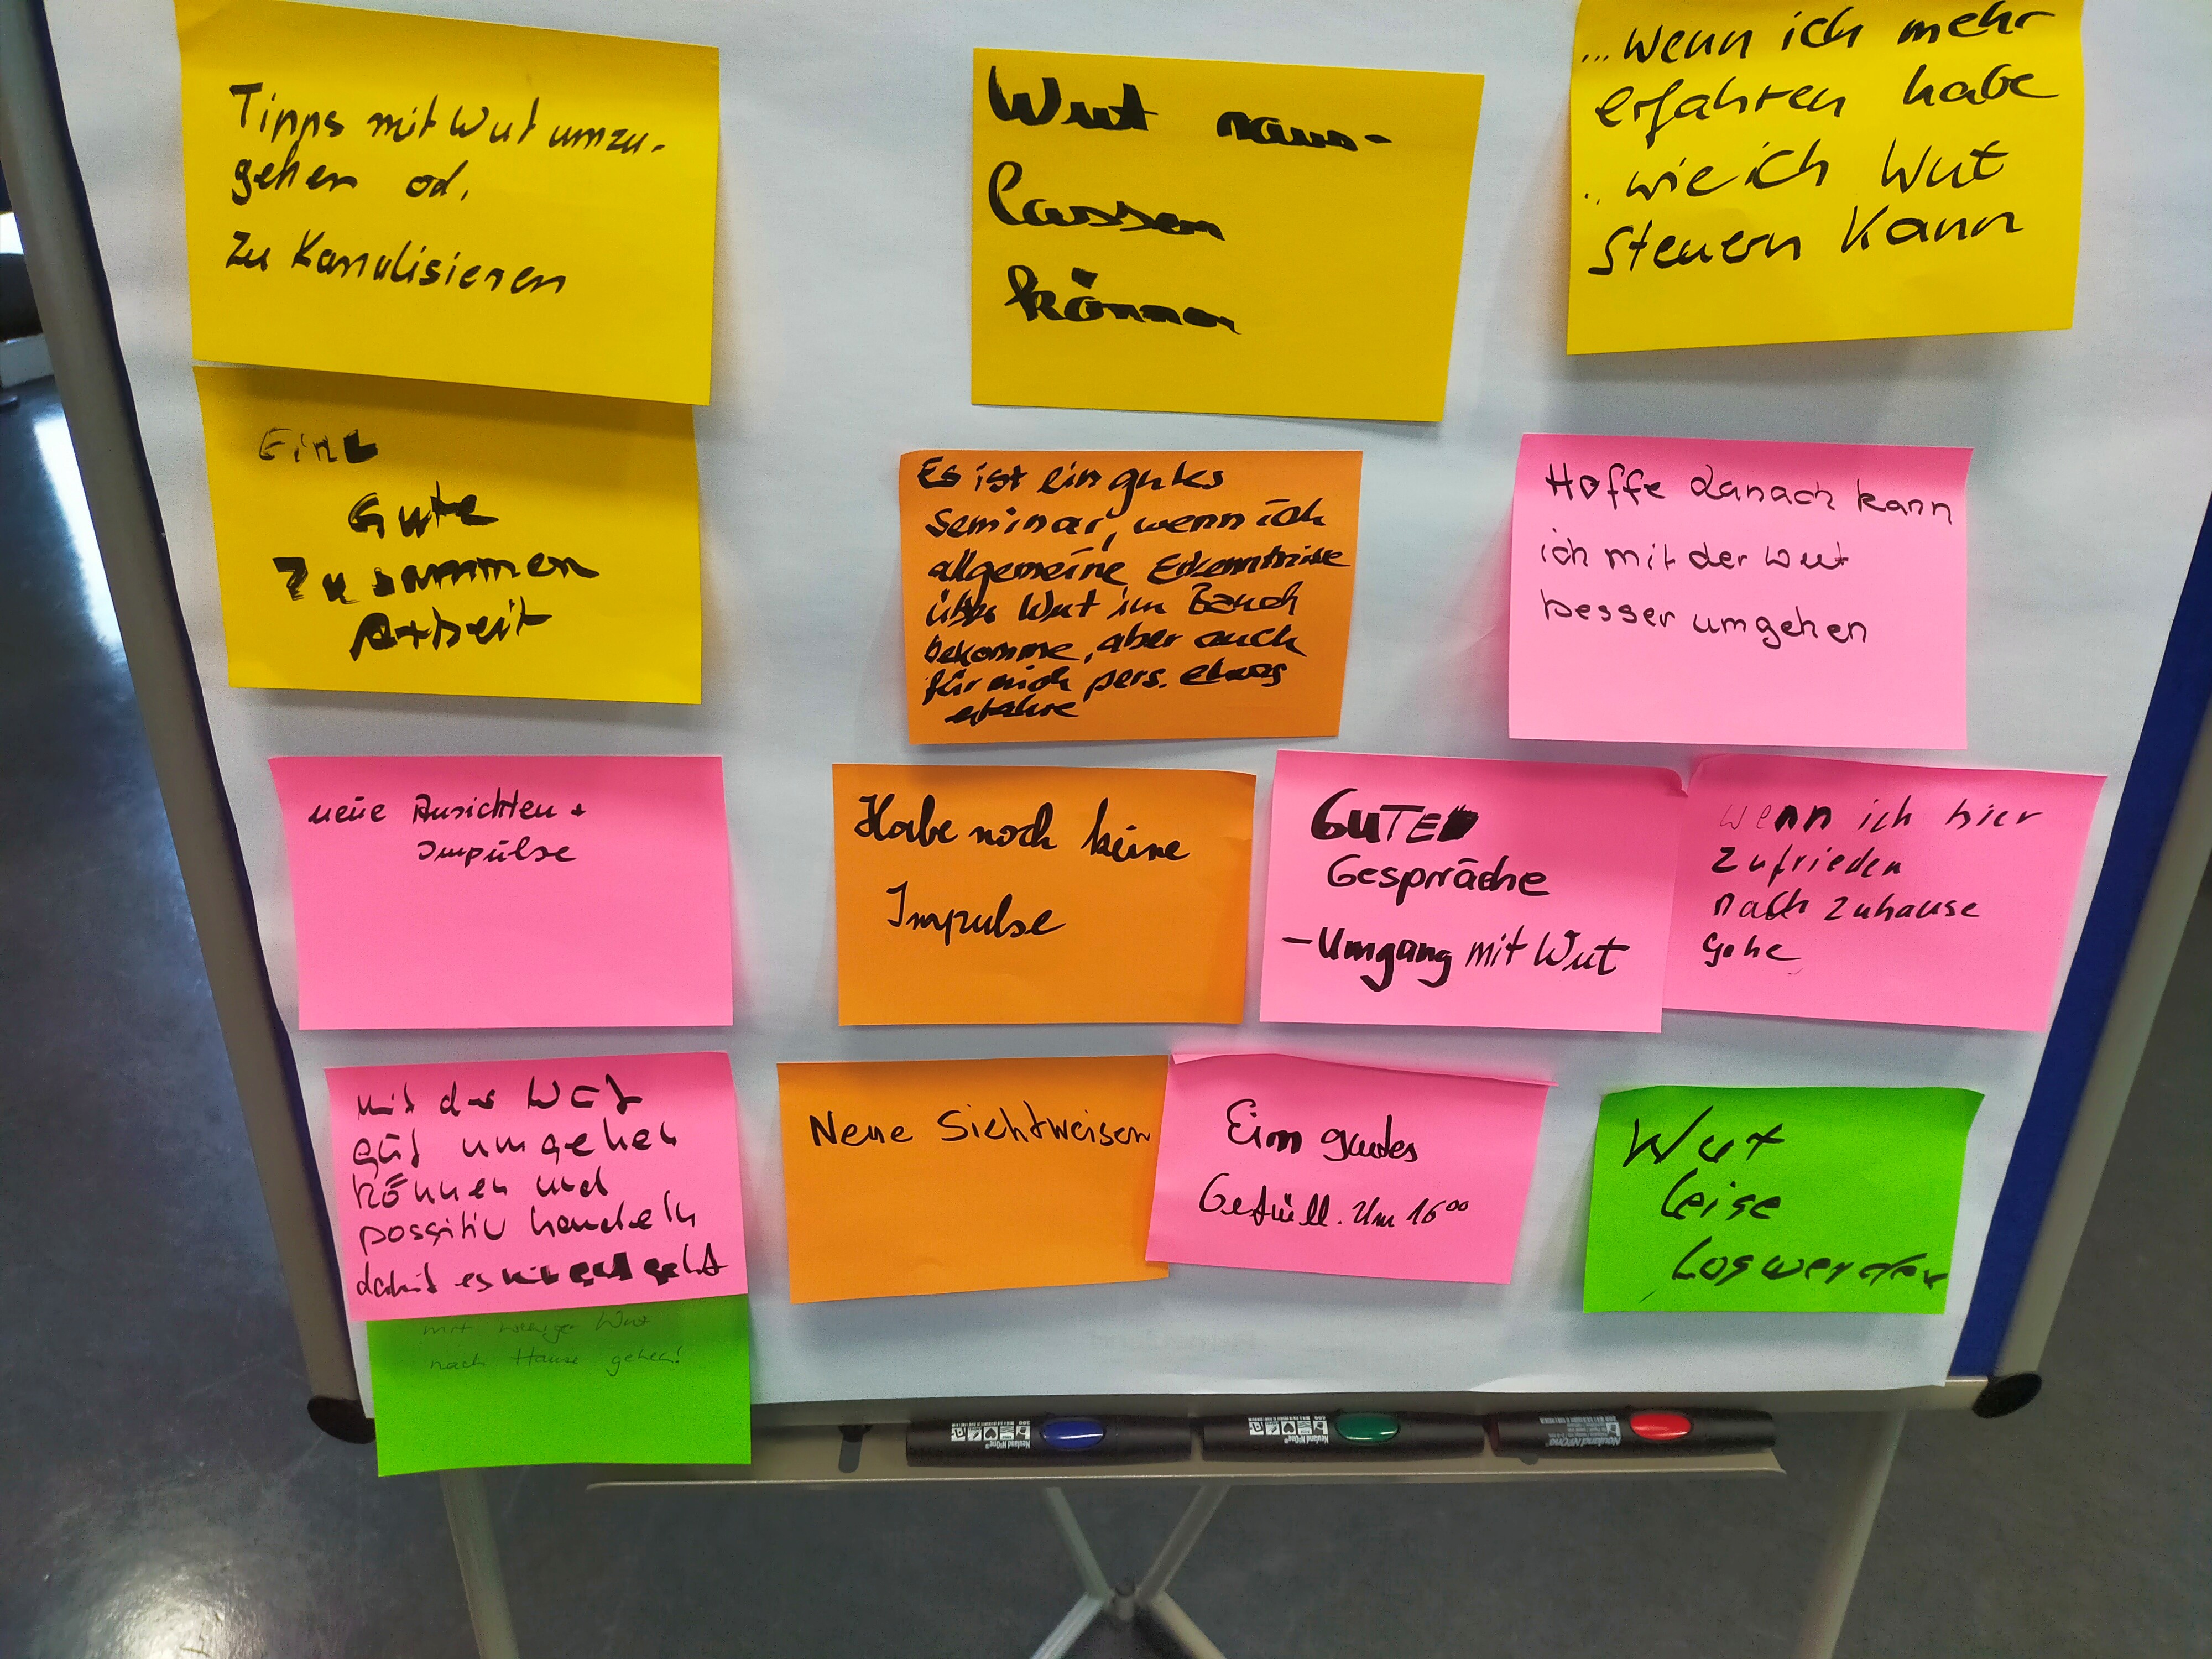 Tipps mit Wut umzu-
gehen od.
zu Kanalisieren
Wut raus-
lassen
können
...wenn ich mehr
erfahren habe
..wie ich Wut
steuern kann
Eine
Gute
Zusammen
Arbeit
Es ist ein gutes
Seminar, wenn ich
allgemeine Erkenntnisse
über Wut im Bauch
bekomme, aber auch
für mich pers. etwas
erfahre
Hoffe danach kann
ich mit der Wut
besser umgehen
neue Ansichten +
Impulse
Habe noch keine
Impulse
GUTE
Gespräche
- Umgang mit Wut
Wenn ich hier
zufrieden
nach zuhause
gehe
mit der Wut
gut umgehen
können und
possitiv handeln
damit es mir gut geht
Neue Sichtweisen
Ein gutes
Gefüll. Um 16⁰⁰
Wut
leise
loswerden
mit weniger Wut
nach Hause gehen!
Neuland No.One®
Neuland No.One®
Neuland No.One®